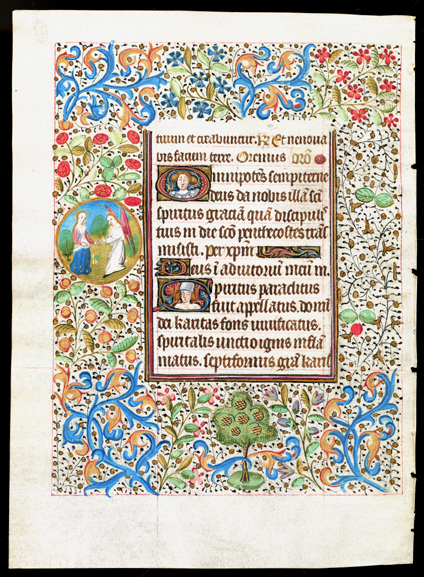 tuum et creabuntur. R Et renova
bis faciem terre. Oremus oro
Omnipotes sempiterne
deus da nobis illā sc̄i
spiritus graciā quā discipulis
tuis in die scō penthecostes trans
misisti. Per xp̄m
Deus ī adiutoriū meū in.
Spiritus paraclitus
fuit appellatus. donū
dei karitas fons vivificatus.
spiritalis unctio ignis infla
matus. septiformis grā karis